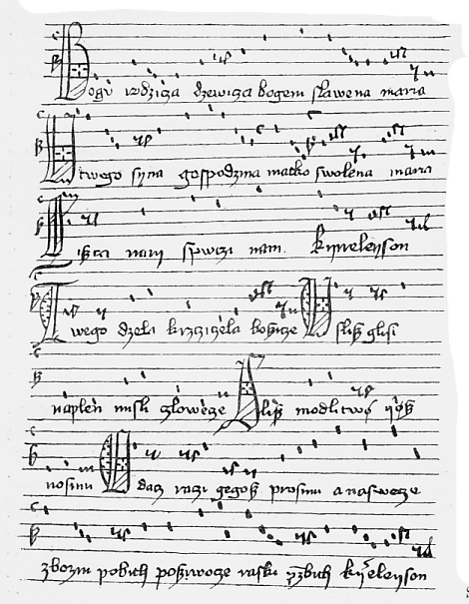 Bogu rodzicza dzewicza bogem slawena maria
U twego syna gospodzina matko swolena maria
Siszczi nam spwczi nam kyrieleyson
Twego dzela krzcziczela bozicze Uslisz glosi
naplen misli czlowecze Slisz modlitwo yosz
nosimi Odacz raczi gegosz prosimi a naswecze
zbozni pobith posziwocze raski przebith kyrieleyson